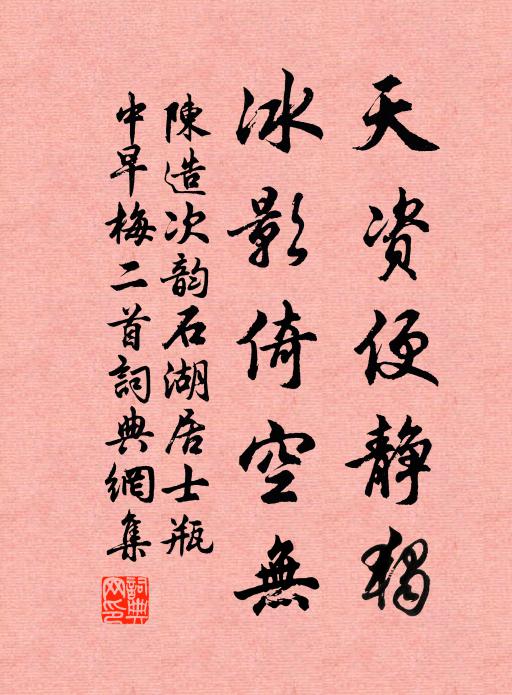 天资便静獨
冰影倚空無
陳造次韵石湖居士瓶
中早梅二首詞典網集
詞典網印